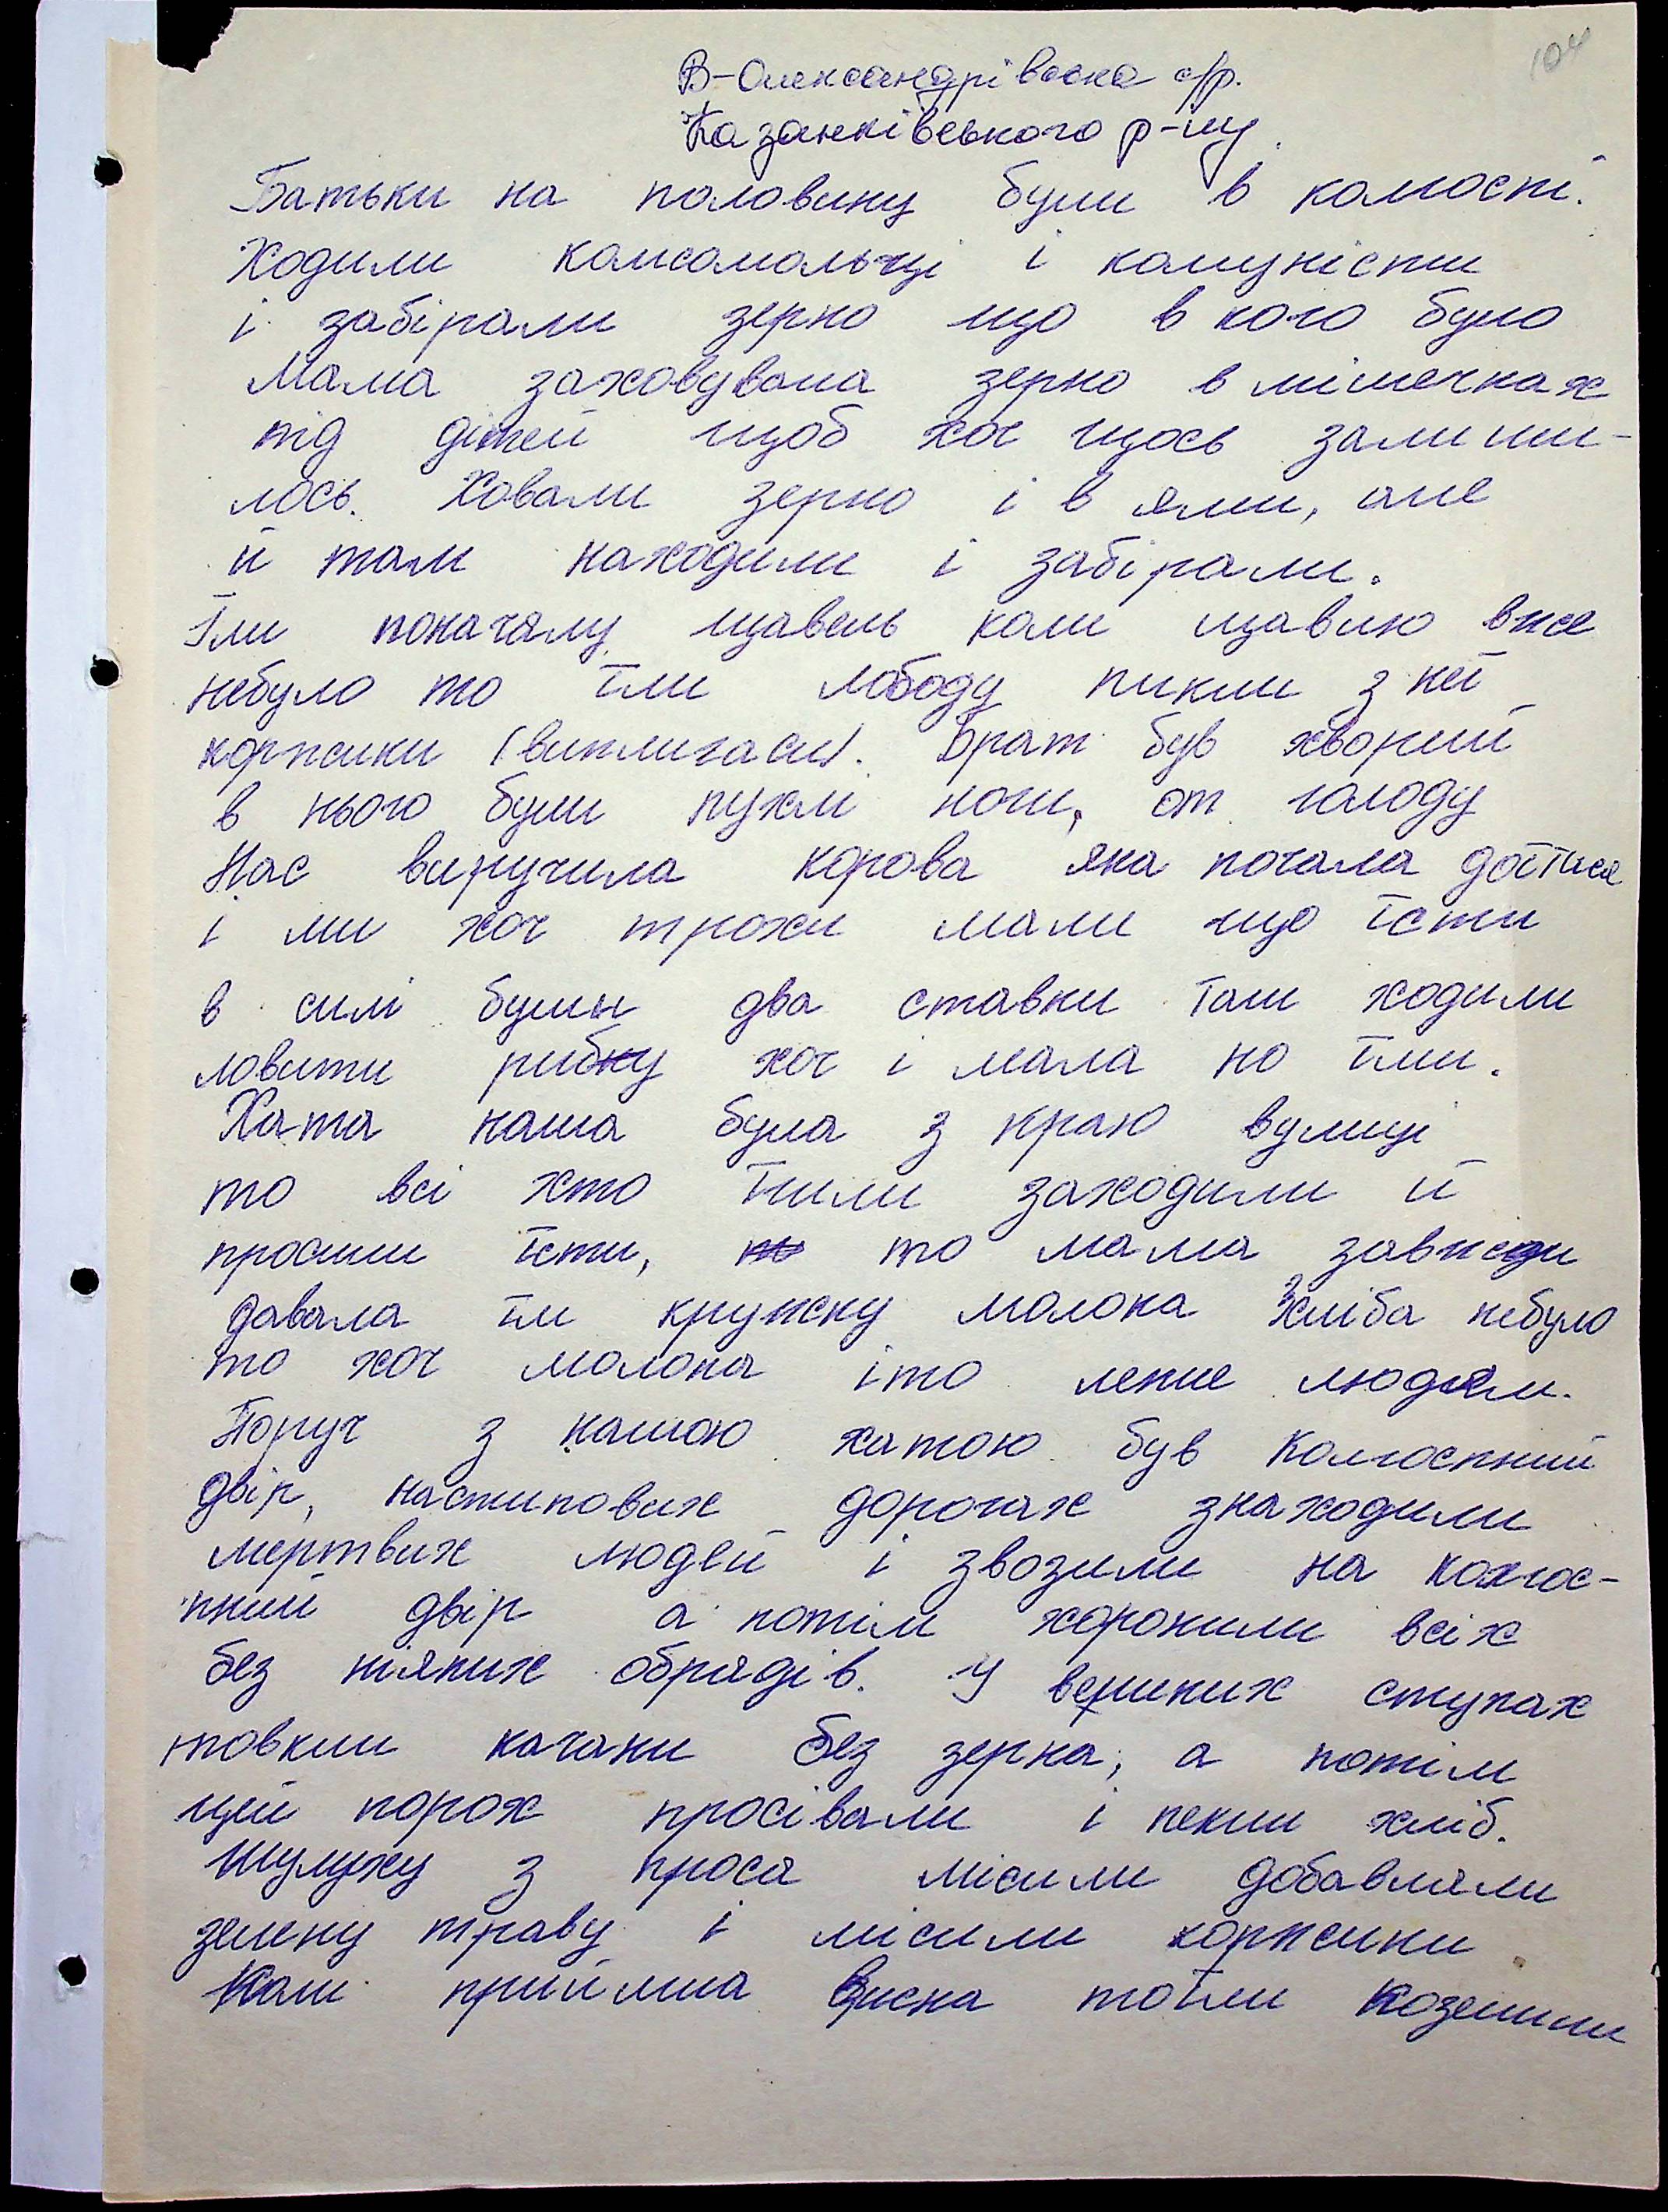 104
В-Олександрівська с/р.
Казанківського р-ну.
Батьки на половину були в колгоспі.
Ходили комсомольці і комуністи
і забірали зерно що в кого було
Мама заховувала зерно в мішечках
під дітей щоб хоч щось залиши-
лось. Ховали зерно і в ями, але
й там находили і забірали.
Їли поначалу щавель коли щавлю вже
небуло то їли лободу пикли з неї
коржики (витлигаси). Брат був хворий
в нього були пухлі ноги, от голоду
Нас виручила корова яка почала доїтися
і ми хоч трохи мали що їсти
в силі були два ставки там ходили
ловити рибку хоч і мала но їли.
Хата наша була з краю вулиці
то всі хто їшли заходили й
просили їсти, то мама завжди
давала їм кружку молока Хліба небуло
то хоч молока іто легше людям.
Поруч з нашою хатою був колгоспний
двір, настипових дорогах знаходили
мертвих людей і звозили на колгос-
пний двір а потім хоронили всіх
без ніяких обрядів. У великих ступах
товкли качани без зерна, а потім
цей порох просівали і пекли хліб.
Шулуху з проса місили добавляли
зелену траву і місили коржики
Коли прийшла висна тоїли козелики